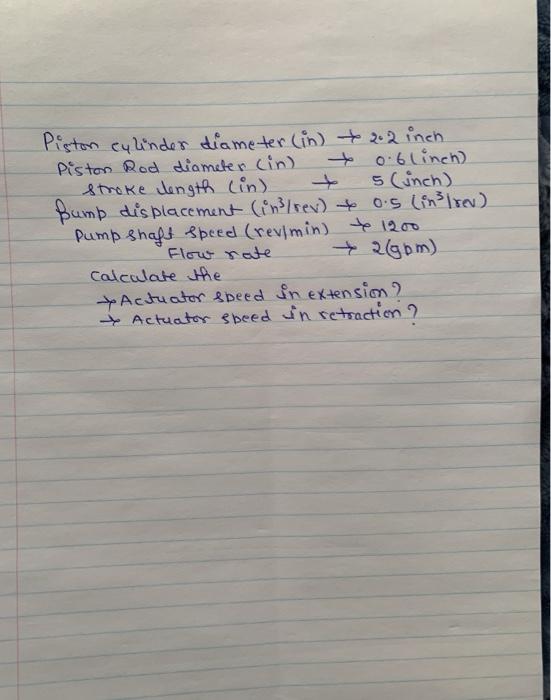 Piston cylinder diameter (in) → 2.2 inch
Piston Rod diameter (in) → 0.6 (inch)
stroke length (in) → 5 (inch)
Pump displacement (in³/rev) → 0.5 (in³/rev)
Pump shaft speed (rev/min) → 1200
Flow rate → 2 (gpm)
Calculate the
→ Actuator speed in extension?
→ Actuator speed in retraction?